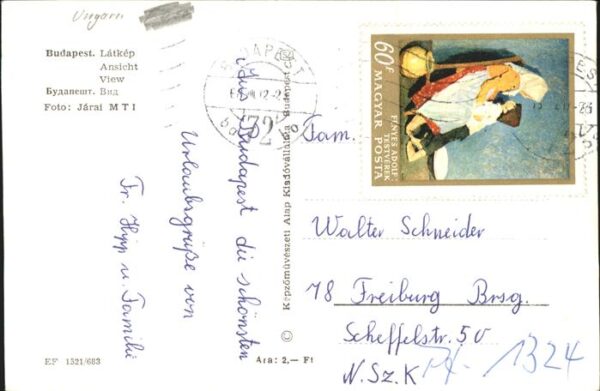 Ungarn
Budapest. Látkép
Ansicht
View
Будапешт. Вид
Foto: Járai MTI
Aus Budapest die schönsten
Urlaubsgrüße von
Fr. Hipp u. Familie
EF 1521/683
Ára: 2,— Ft
© Képzőművészeti Alap Kiadóvállalata, Budapest
BUDAPEST
72
60f
MAGYAR POSTA
FÉNYES ADOLF:
TESTVÉREK
Fam.
Walter Schneider
78 Freiburg Brsg.
Scheffelstr. 50
N.Sz.K
1324